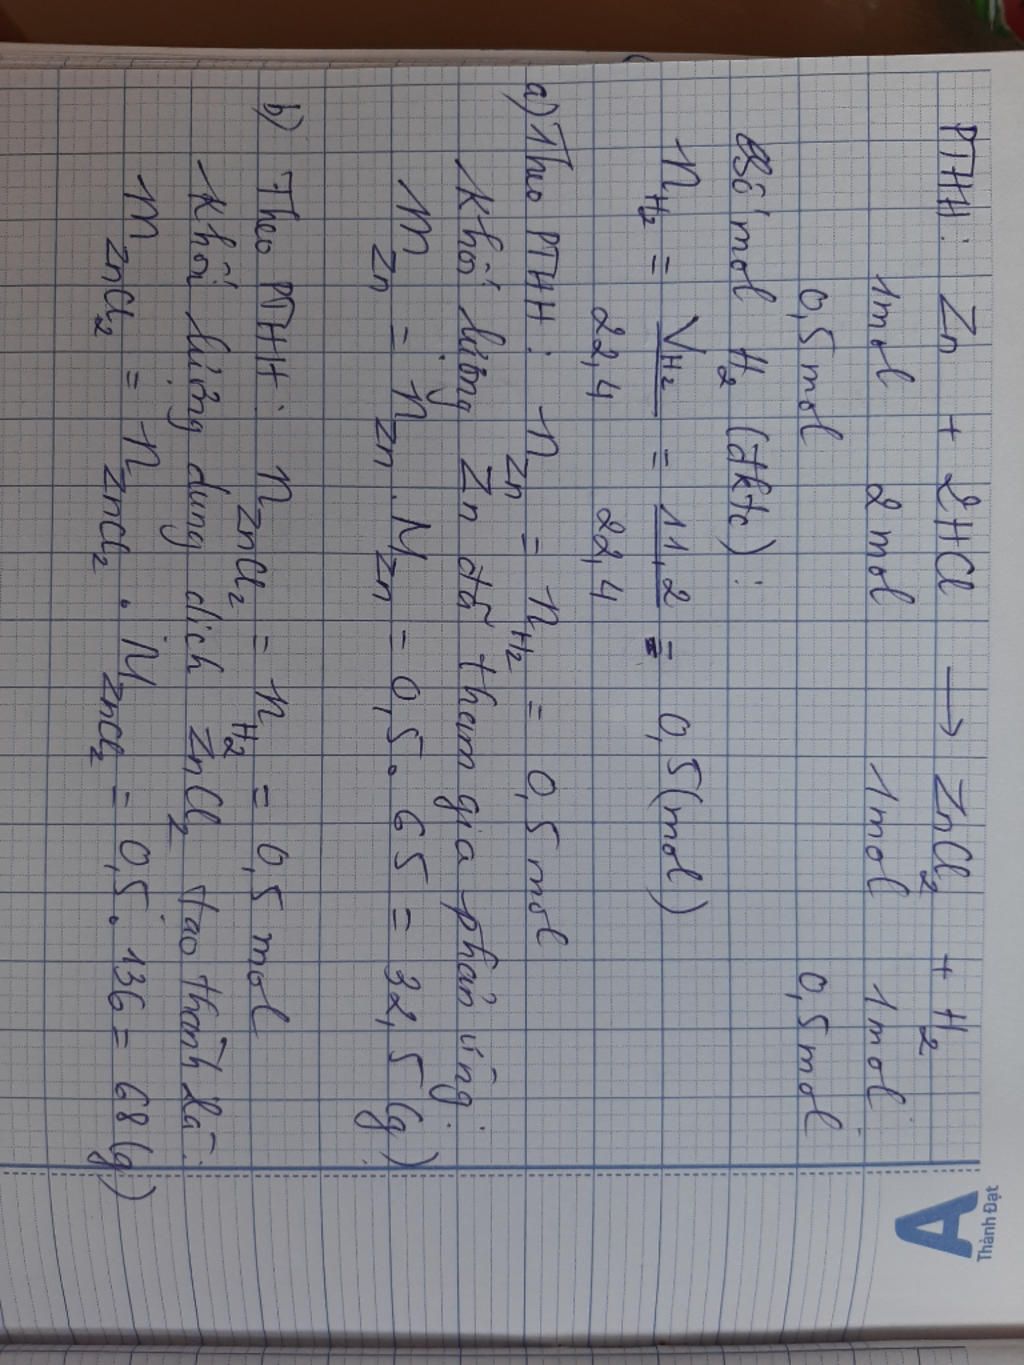 PTHH: Zn + 2HCl → ZnCl₂ + H₂
1mol 2mol 1mol 1mol
0,5mol 0,5mol
Số mol H₂ (đktc):
n_H₂ = V_H₂/22,4 = 11,2/22,4 = 0,5(mol)
a) Theo PTHH: n_Zn = n_H₂ = 0,5mol
Khối lượng Zn đã tham gia phản ứng:
m_Zn = n_Zn . M_Zn = 0,5 . 65 = 32,5(g)
b) Theo PTHH: n_ZnCl₂ = n_H₂ = 0,5mol
Khối lượng dung dịch ZnCl₂ tạo thành là:
m_ZnCl₂ = n_ZnCl₂ . M_ZnCl₂ = 0,5 . 136 = 68(g)
A
Thành Đạt